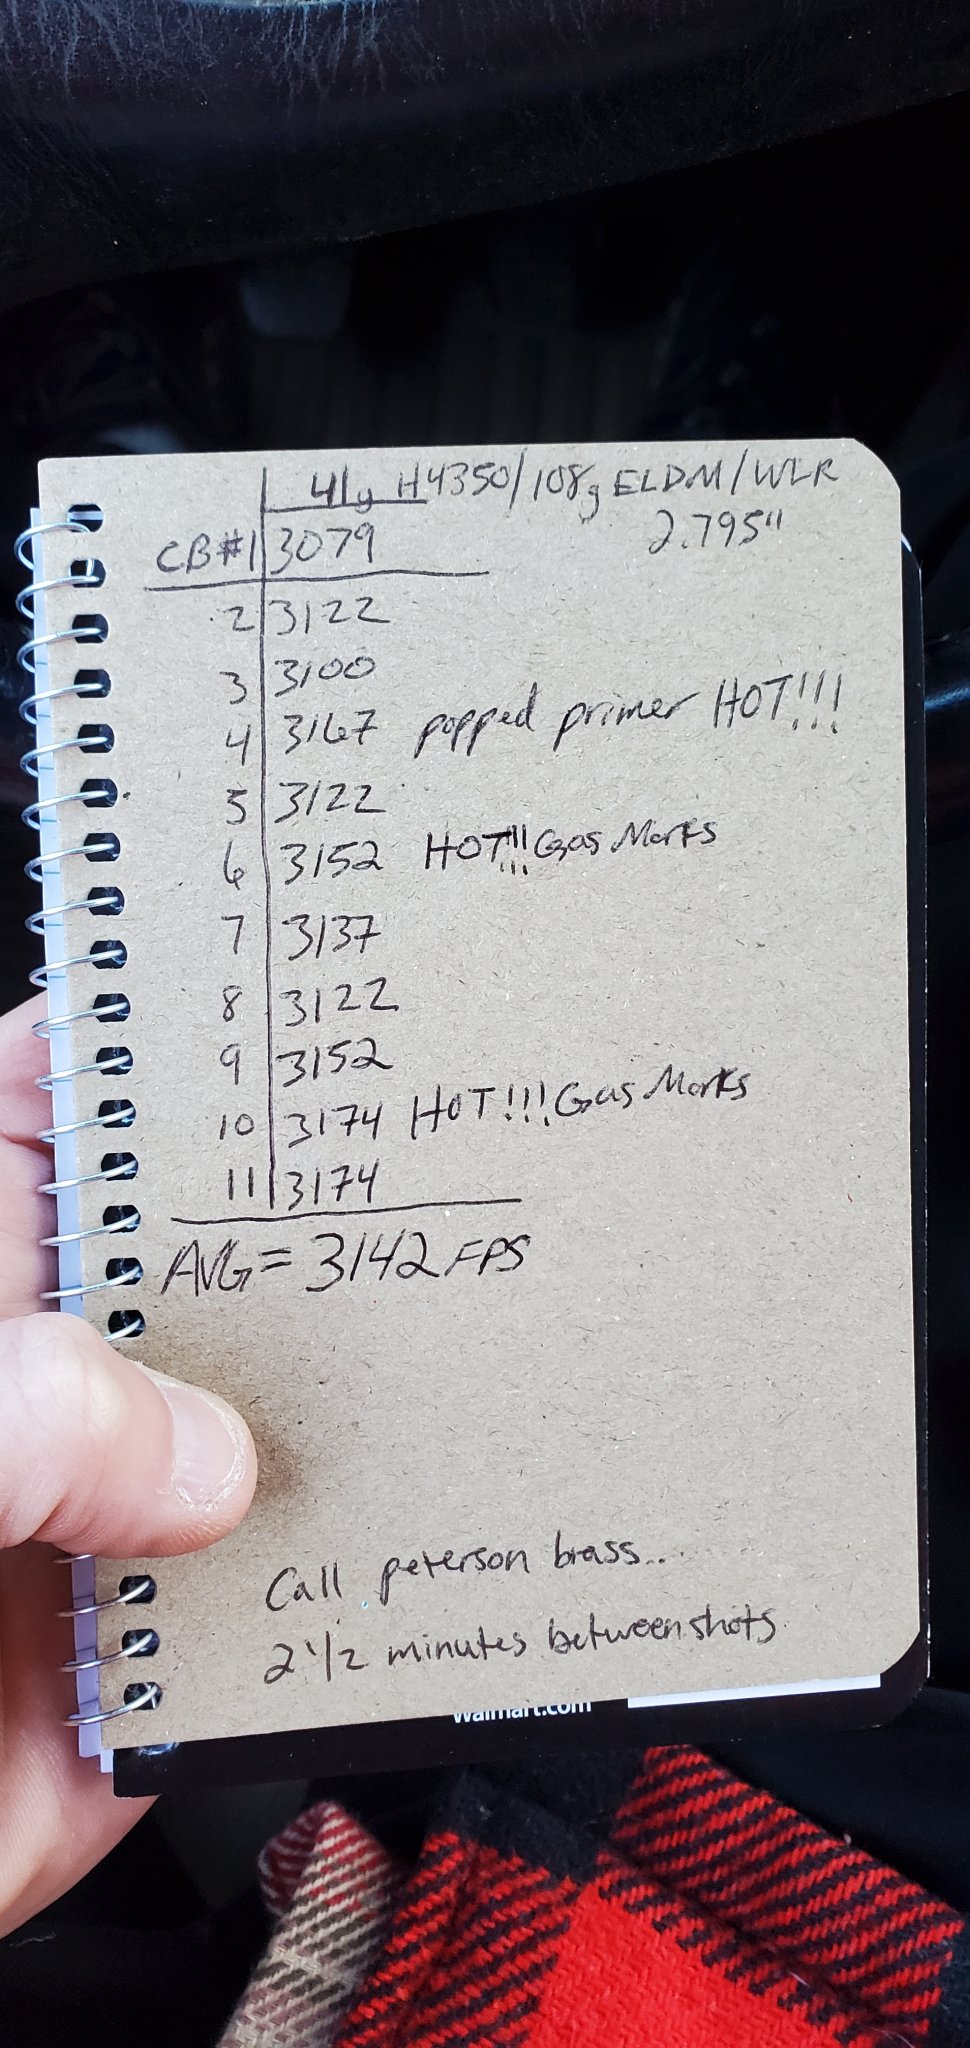 41g H4350/108g ELDM/WLR
CB#1 3079 2.795"
2 3122
3 3100
4 3167 popped primer HOT!!!
5 3122
6 3152 HOT!!! Gas Marks
7 3137
8 3122
9 3152
10 3174 HOT!!! Gas Marks
11 3174
AVG = 3142 FPS
Call peterson brass..
2 1/2 minutes between shots
Walmart.com